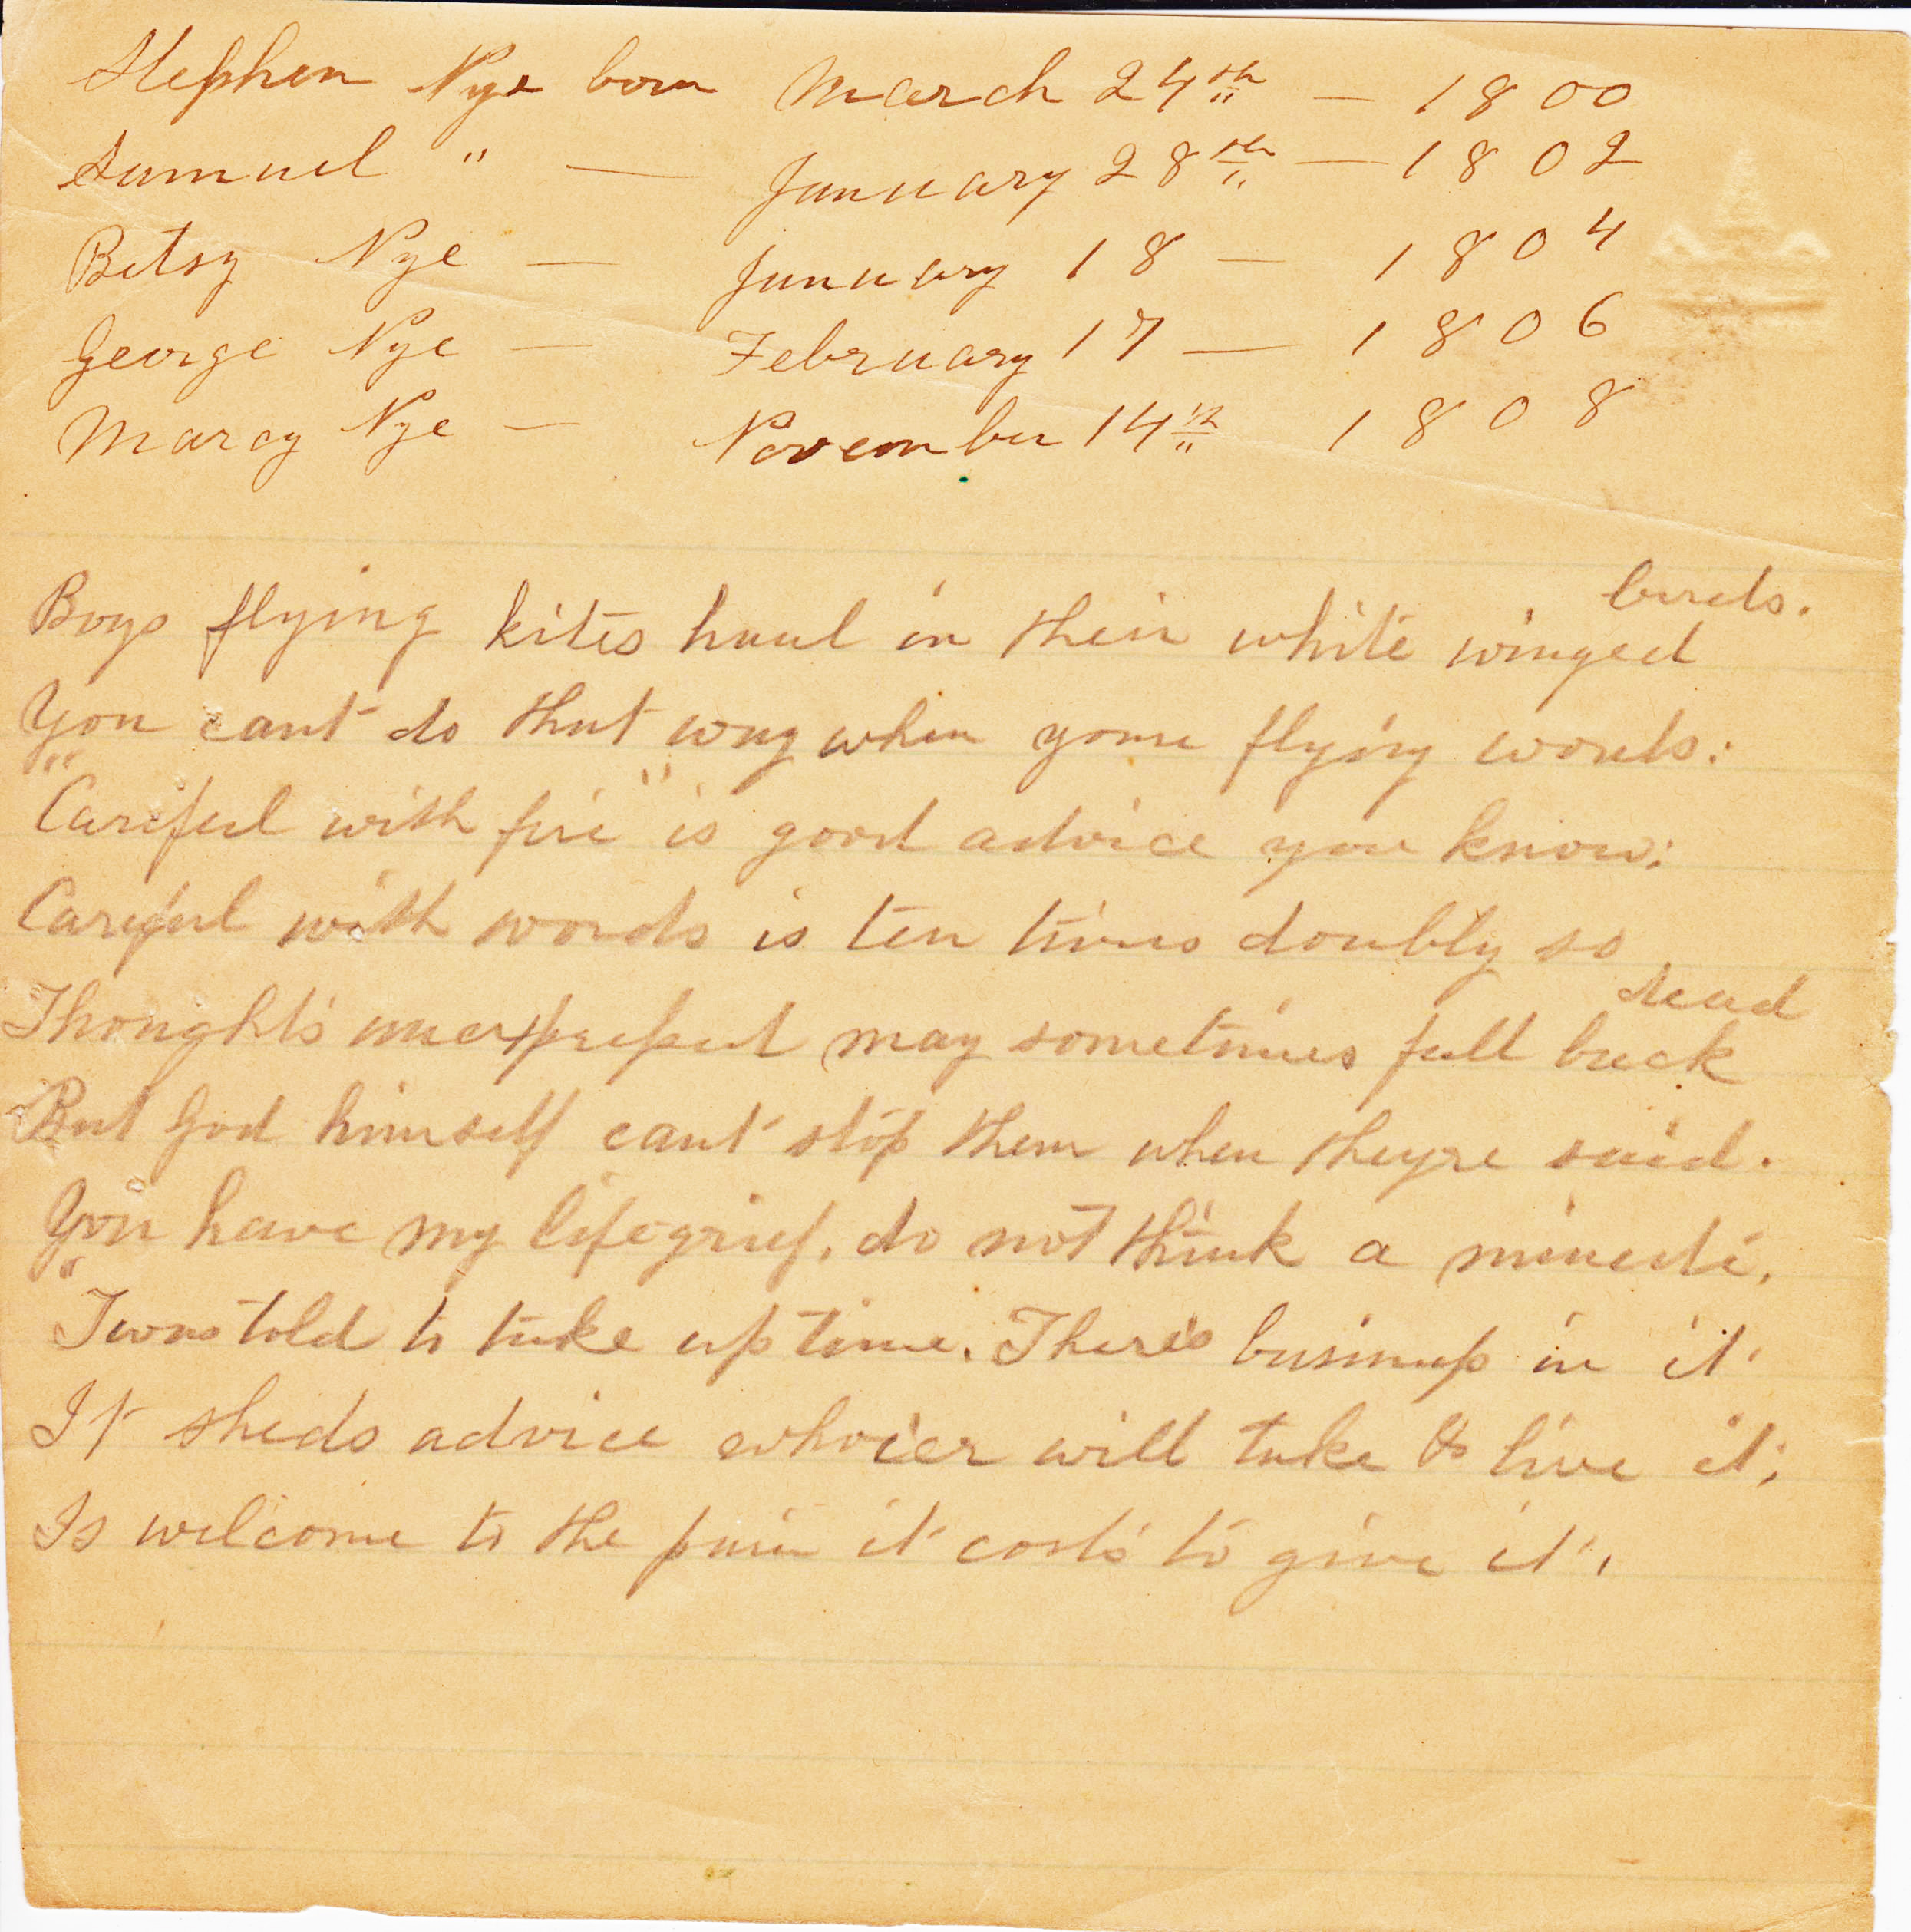 Stephen Nye born March 24th — 1800
Samuel " — January 28th — 1802
Betsy Nye — January 18 — 1804
George Nye — February 17 — 1806
Marcy Nye — November 14th 1808
Boys flying kites haul in their white winged birds.
You cant do that way when youre flying words:
"Careful with fire" is good advice you know:
Careful with words is ten times doubly so
Thoughts unexpressed may sometimes fall back dead
But God himself cant stop them when theyre said.
You have my life grief. do not think a minute.
"Twas told to take up time. Theres business in it.
It sheds advice whoe'er will take & live it;
Is welcome to the pain it costs to give it.